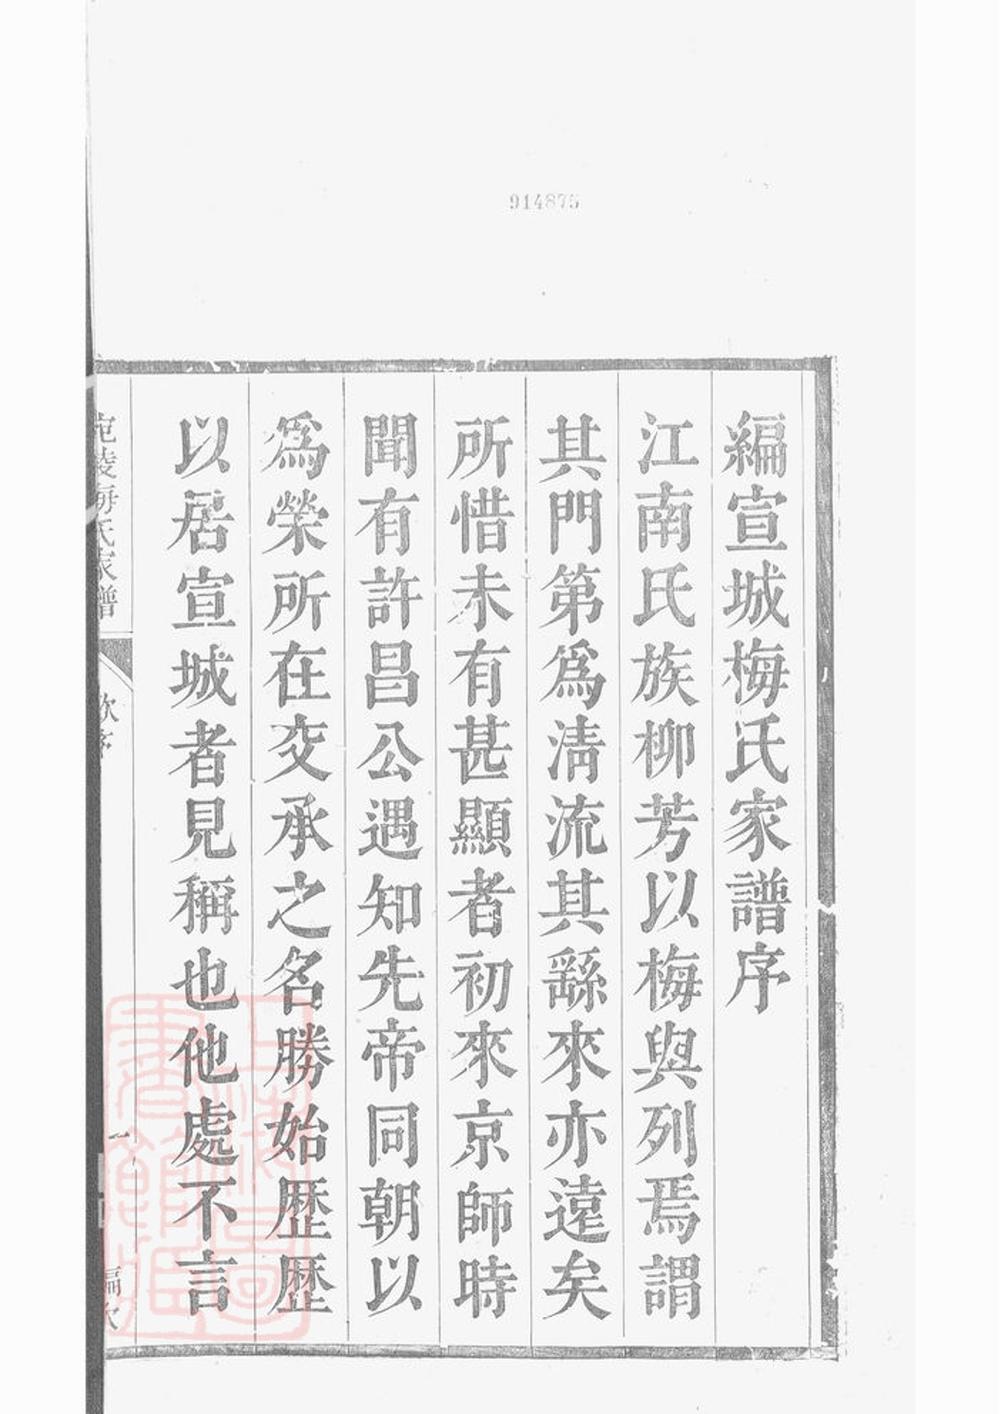 914875
編宣城梅氏家譜序
江南氏族柳芳以梅與列焉謂
其門第爲清流其繇來亦遠矣
所惜未有甚顯者初來京師時
聞有許昌公遇知先帝同朝以
爲榮所在交承之名勝始歷歷
以居宣城者見稱也他處不言
宛陵梅氏家譜
序
一
編次